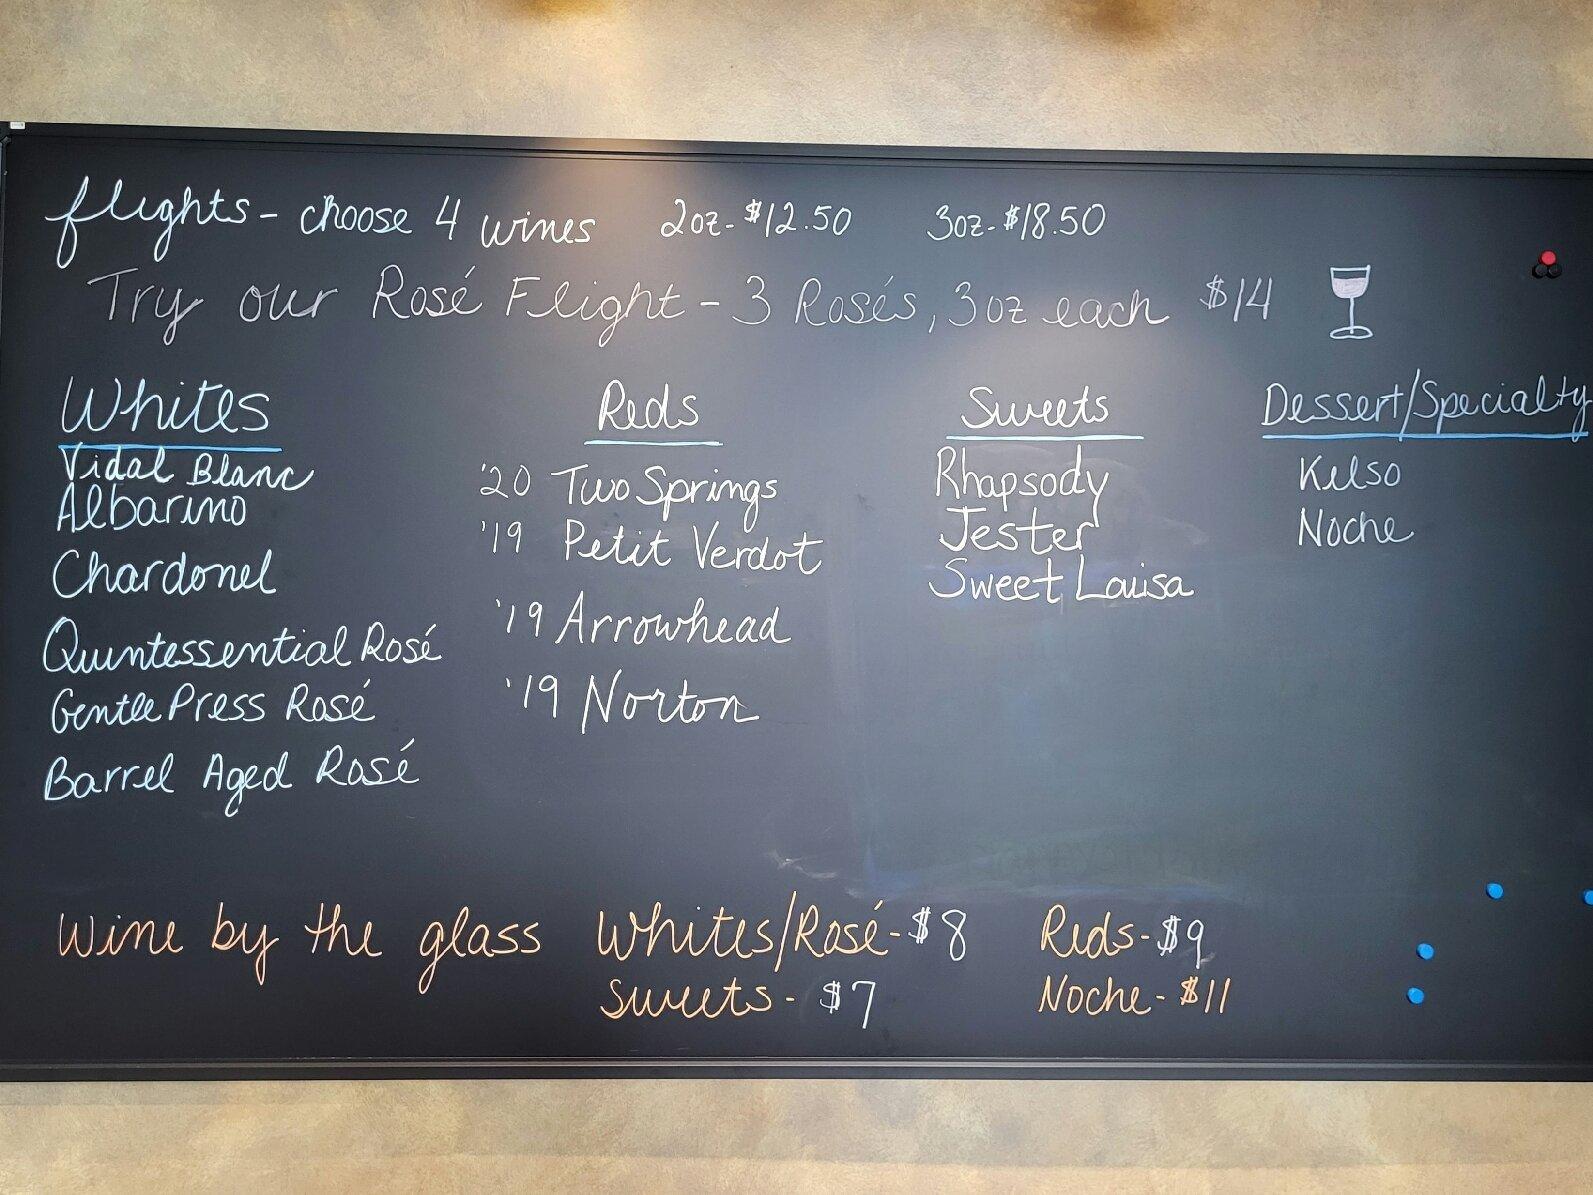 flights - choose 4 wines 2oz- $12.50 3oz- $18.50
Try our Rosé Flight - 3 Rosés, 3oz each $14
Whites
Vidal Blanc
Albarino
Chardonel
Quintessential Rosé
Gentle Press Rosé
Barrel Aged Rosé
Reds
'20 Two Springs
'19 Petit Verdot
'19 Arrowhead
'19 Norton
Sweets
Rhapsody
Jester
Sweet Louisa
Dessert/Specialty
Kelso
Noche
Wine by the glass Whites/Rosé - $8 Reds - $9
Sweets - $7 Noche - $11